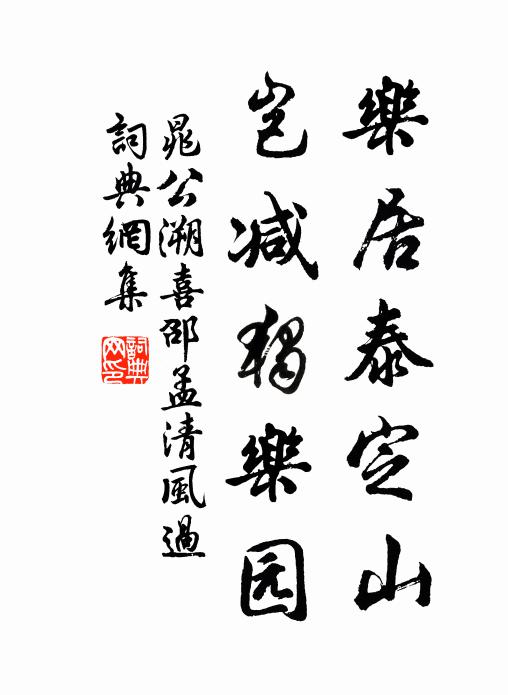 樂居泰定山
岂减獨樂园
晁公溯喜邵孟清風過
詞典網集
詞典
网印